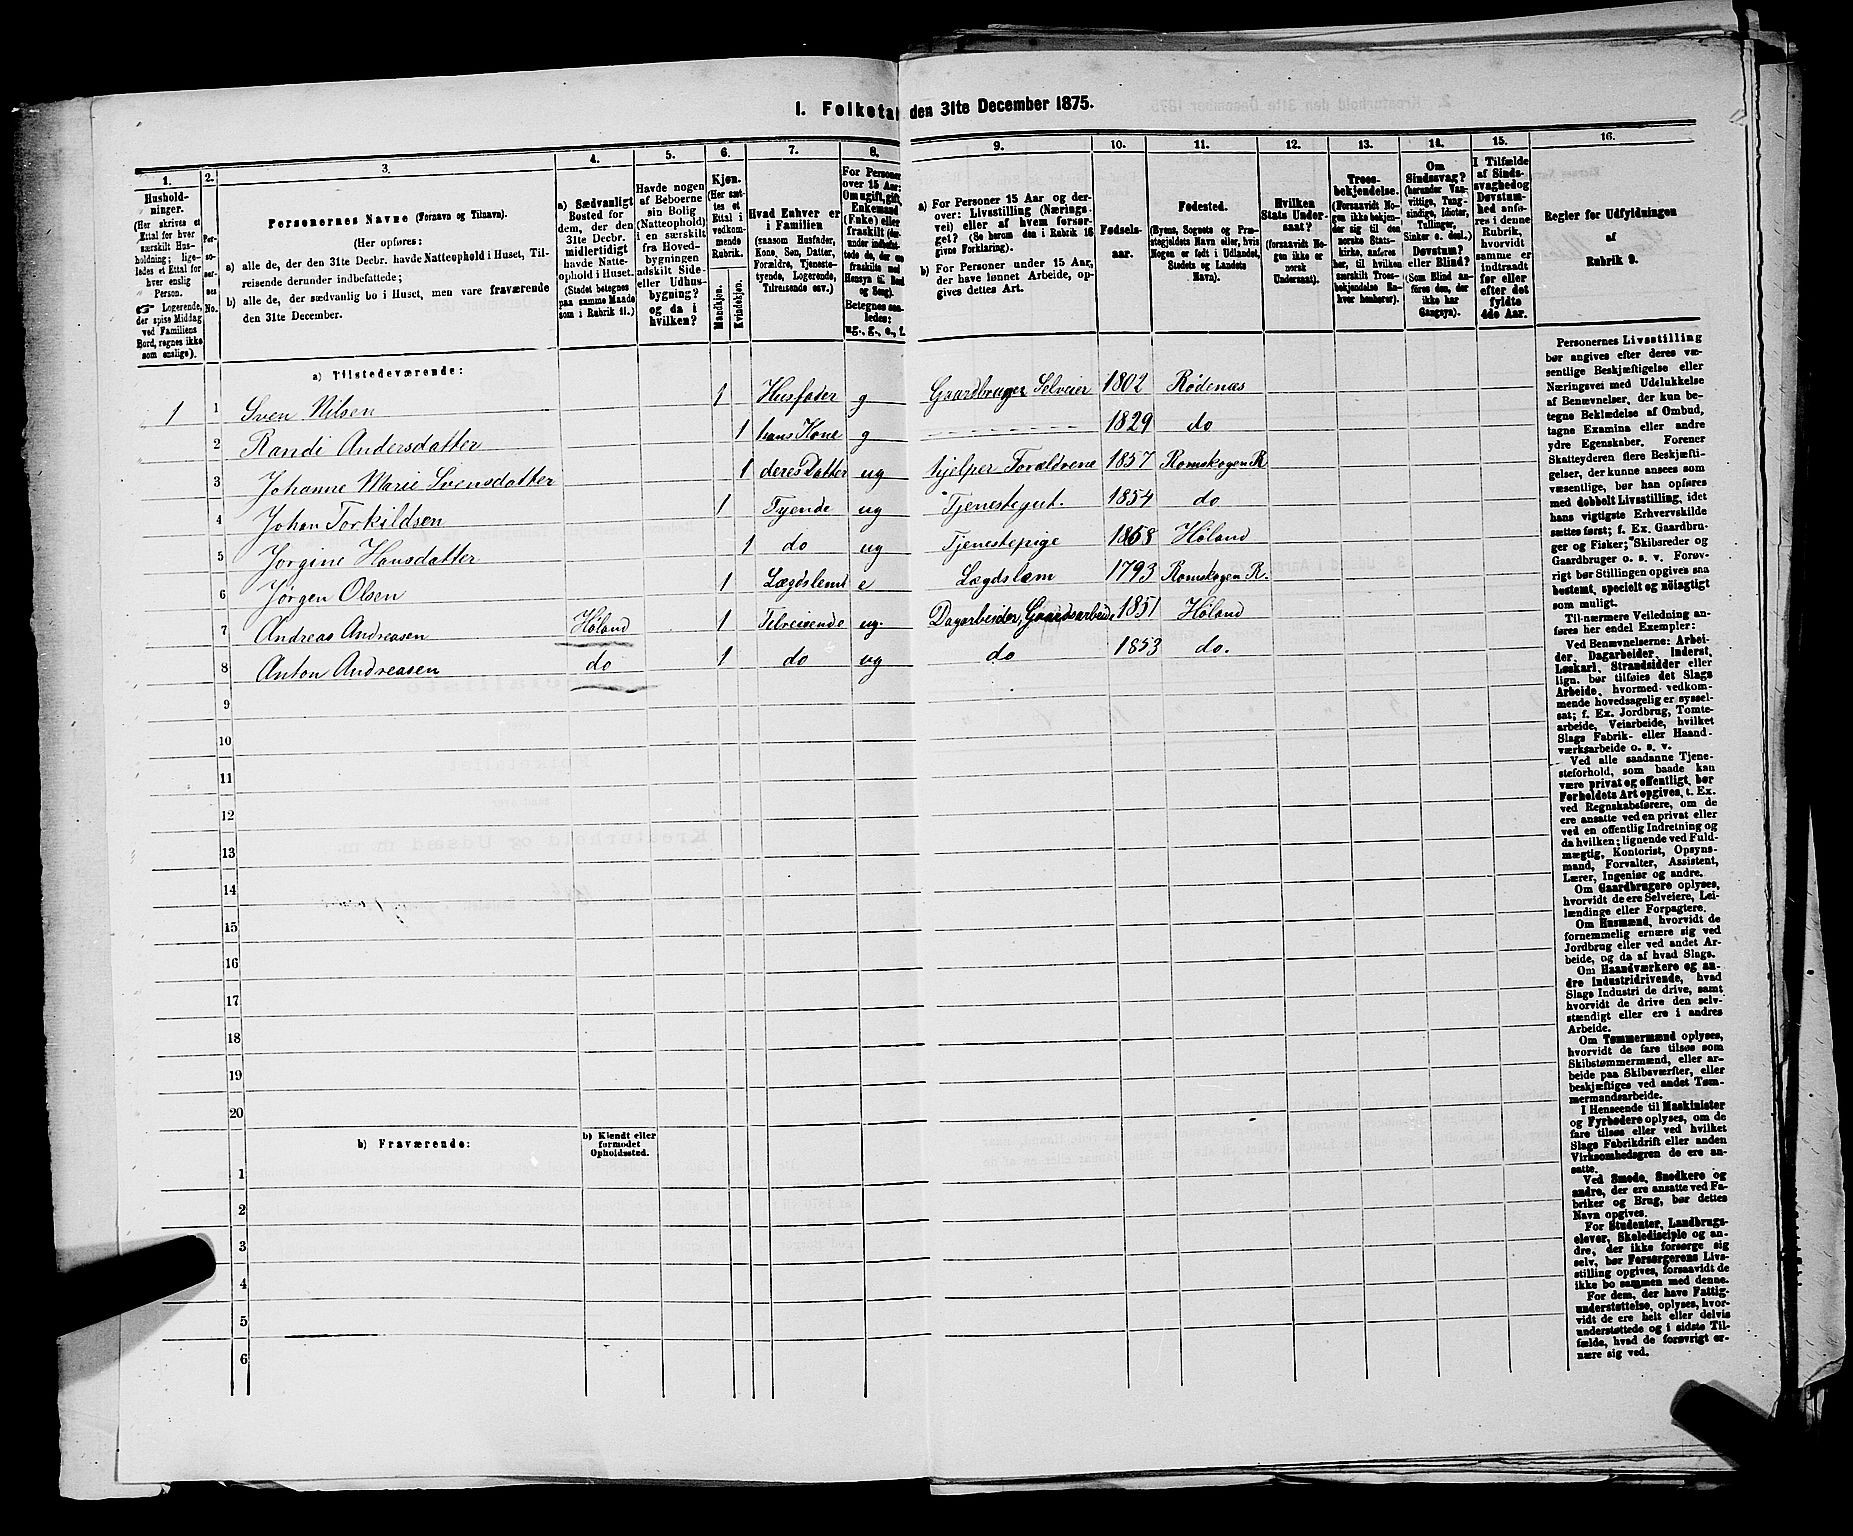 1. Folketal den 31te December 1875.
1. 2. 3. 4. 5. 6. 7. 8. 9. 10. 11. 12. 13. 14. 15. 16.
Husholdninger.
(Her skrives et
Ettal for hver
særskilt Husholdning; ligeledes
et Ettal for
hver enslig
Person.
Logerende,
der spise Middag
ved Familiens
Bord, regnes ikke
som enslige).
Personernes No.
Personernes Navne (Fornavn og Tilnavn).
(Her opføres:
a) alle de, der den 31te Decbr. havde Natteophold i Huset, Tilreisende derunder indbefattede;
b) alle de, der sædvanlig bo i Huset, men vare fraværende
den 31te December.
a) Sædvanligt
Bosted for
dem, der den
31te Decbr.
midlertidigt
havde Natteophold
i Huset.
(Stedet betegnes
paa samme Maade
som i Rubrik 11.)
Havde nogen
af Beboerne
sin Bolig
(Natteophold)
i en særskilt
fra Hovedbygningen
adskilt Side-
eller Udhusbygning?
og da i
hvilken?
Kjøn.
(Her sættes et
Ettal i
vedkommende
Rubrik.
Mandkjøn.
Kvindekjøn.
Hvad Enhver er
i Familien
(saasom Husfader,
Kone, Søn, Datter,
Forældre, Tjenestetyende,
Logerende,
Tilreisende osv.)
For Personer
over 15 Aar:
Om ugift, gift,
Enkemand
(Enke) eller
fraskilt
Betegnes saaledes:
ug., g., e., f.
a) For Personer 15 Aar og derover: Livsstilling (Næringsvei) eller af hvem forsørget? (Se herom den i Rubrik 16
givne Forklaring).
b) For Personer under 15 Aar,
der have lønnet Arbeide, opgives dettes Art.
Fødselsaar.
Fødested.
(Byens, Sognets og Præstegjeldets Navn eller, hvis
Nogen er født i Udlandet,
Stedets og Landets
Navn).
Hvilken
Stats Undersaat?
(forsaavidt Nogen ikke er
norsk
Undersaat).
Troesbekjendelse.
(Forsaavidt Nogen ikke bekjender sig til den
norske Statskirke, anføres
her, til hvilken
særskilt Troesbekjendelse Enhver henhører).
Om
Sindssvag?
(herunder Vanvittige, Tungsindige, Idioter,
Tullinger,
Sinker o. desl.)
Døvstum?
eller Blind?
(Som Blind anføres den, der
ikke har
Gangsyn).
I Tilfælde
af Sindssvaghed og
Døvstumhed anføres i denne
Rubrik,
hvorvidt
samme er
indtraadt
før eller
efter det
fyldte
4de Aar.
Regler for Udfyldningen
af
Rubrik 9.
a) Tilstedeværende:
1 1 Sven Nilsen 1 Husfader g Gaardbruger Selveier 1802 Rødenæs
2 Randi Andersdatter 1 hans Kone g 1829 do
3 Johanne Marie Svensdatter 1 deres Datter ug hjelper Forældrene 1857 Romskogen R
4 Johan Torkildsen 1 Tyende ug Tjenestegut. 1854 do
5 Jørgine Hansdatter 1 do ug Tjenestepige 1858 Høland
6 Jørgen Olsen 1 Lægdslem e Lægdslem 1793 Romskogen R.
7 Andreas Andreasen Høland 1 Tilreisende ug. Dagarbeider, Gaardsarbeide 1851 Høland
8 Anton Andreasen do 1 do ug do 1853 do.
9
10
11
12
13
14
15
16
17
18
19
20
b) Fraværende:
b) Kjendt eller
formodet
Opholdssted.
1
2
3
4
5
6
Personernes Livsstilling
bør angives efter deres væsentlige Beskjæftigelse eller
Næringsvei med Udelukkelse
af Benævnelser, der kun betegne Beklædelse af Ombud,
tagne Examina eller andre
ydre Egenskaber. Forener
Skatteyderen flere Beskjæftigelser, der kunne ansees som
væsentlige, bør han opføres
med dobbelt Livsstilling, idet
hans vigtigste Erhvervskilde
sættes først; f. Ex. Gaardbruger og Fisker; Skibsreder og
Gaardbruger o. s. v. Forøvrigt bør Stillingen opgives saa
bestemt, specielt og nøiagtigt
som muligt.
Til nærmere Veiledning anføres her endel Exempler:
Ved Benævnelserne: Arbeider, Dagarbeider, Inderst,
Løskarl, Strandsidder eller
lign. bør tilføies det Slags
Arbeide, hvormed vedkommende hovedsagelig er sysselsat; f. Ex. Jordbrug, Tomtearbeide, Veiarbeide, hvilket
Slags Fabrik- eller Haandværksarbeide o. s. v.
Ved alle saadanne Tjenesteforhold, som baade kan
være privat og offentligt, bør
Forholdets Art opgives, t. Ex.
ved Regnskabsførere, om de
ere ansatte ved en privat eller
ved en offentlig Indretning og
da hvilken; lignende ved Fuldmægtig, Kontorist, Opsynsmand, Forvalter, Assistent,
Lærer, Ingeniør og andre.
Om Gaardbrugere oplyses,
hvorvidt de ere Selveiere, Leilændinge eller Forpagtere.
Om Husmænd, hvorvidt de
fornemmelig ernære sig ved
Jordbrug eller ved andet Arbeide, og da af hvad Slags.
Om Haandværkere og andre Industridrivende, hvad
Slags Industri de drive, samt
hvorvidt de drive den selvstændigt eller ere i andres
Arbeide.
Om Tømmermænd oplyses,
hvorvidt de fare tilsøs som
Skibstømmermænd, eller arbeide paa Skibsværfter, eller
beskjæftiges ved andet Tømmermandsarbeide.
I Henseende til Maskinister
og Fyrbødere oplyses, om de
fare tilsøs eller ved hvilket
Slags Fabrikdrift eller anden
Virksomhedsgren de ere ansatte.
Ved Smede, Snedkere og
andre, der ere ansatte ved Fabriker og Brug, bør dettes
Navn opgives.
For Studenter, Landbrugselever, Skoledisciple og andre, der ikke forsørge sig
selv, bør Forsørgerens Livsstilling opgives, forsaavidt de
ikke bo sammen med denne.
For dem, der have Fattigunderstøttelse, oplyses, hvorvidt de ere helt eller delvis
understøttede og i sidste Tilfælde, hvad de forøvrigt ernære sig ved.